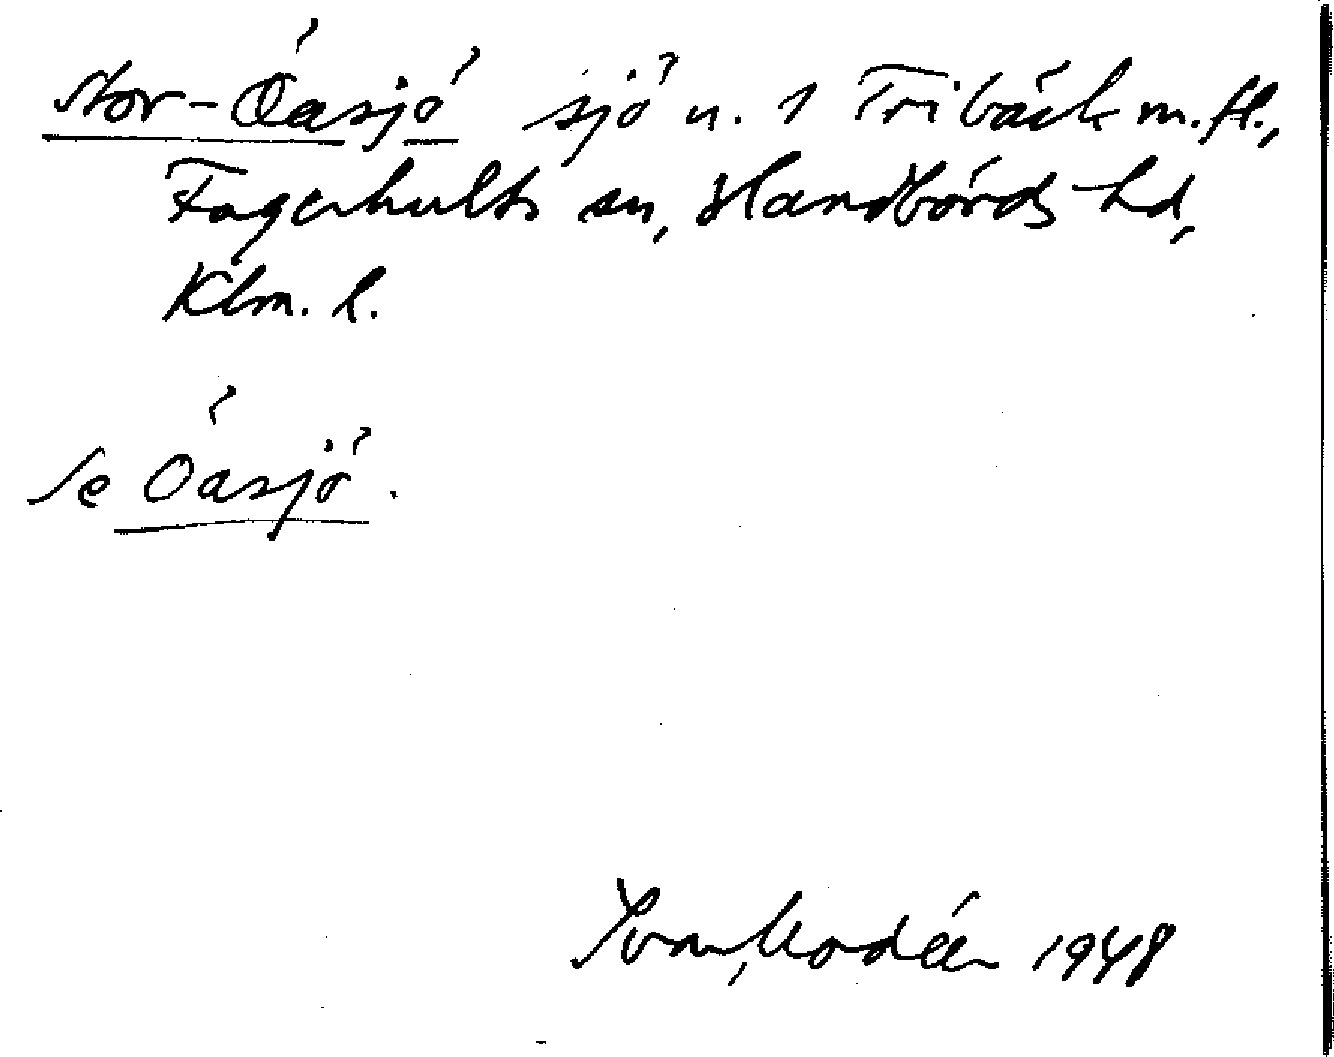 Stor-Öasjö sjö u. 1 Tribäck m.fl.,
Fagerhults sn, Handbörds hd,
Klm. l.
Se Öasjö.
Ivar Modéer 1948